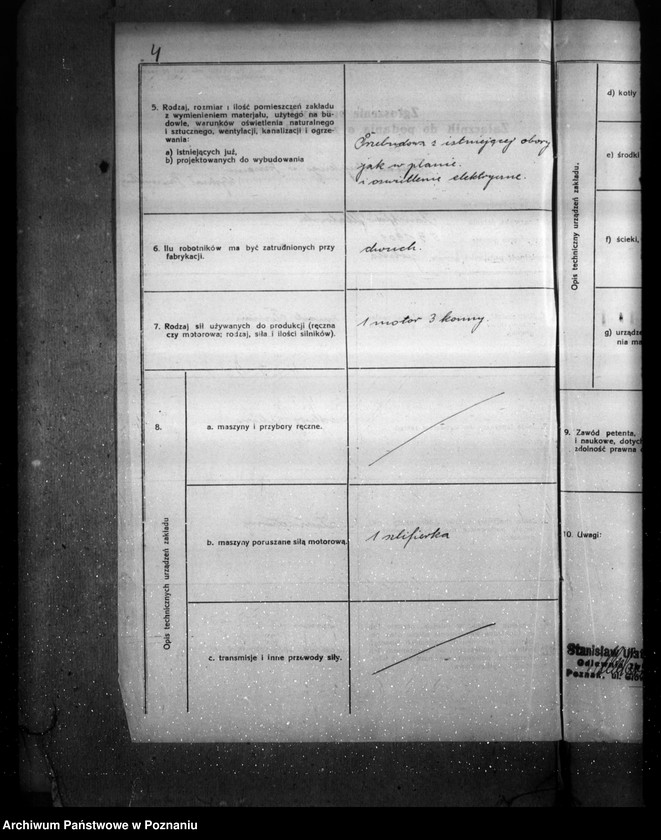 4
5. Rodzaj, rozmiar i ilość pomieszczeń zakładu
z wymienieniem materjału, użytego na bu-
dowle, warunków oświetlenia naturalnego
i sztucznego, wentylacji, kanalizacji i ogrze-
wania:
a) istniejących już,
b) projektowanych do wybudowania
Przebudowa z istniejącej obory
jak w planie.
i oswietlenie elektryczne.
6. Ilu robotników ma być zatrudnionych przy
fabrykacji.
dwuch.
7. Rodzaj sił używanych do produkcji (ręczna
czy motorowa; rodzaj, siła i ilości silników).
1 motor 3 konny.
8.
Opis technicznych urządzeń zakładu
a. maszyny i przybory ręczne.
b. maszyny poruszane siłą motorową.
1 szlifierka
c. transmisje i inne przewody siły.
Opis techniczny urządzeń zakładu.
d) kotły
e) środki
f) ścieki,
g) urządze
nia ma
9. Zawód petenta,
i naukowe, dotyc
zdolność prawna
10. Uwagi:
Stanisław
Odlewnia
Poznań, ul.
Archiwum Państwowe w Poznaniu